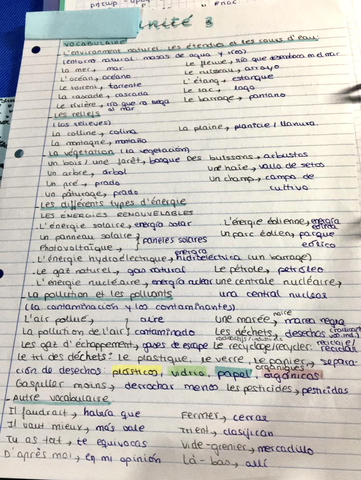 Unité 3
VOCABULAIRE
L'environment naturel: les étendues et les cours d'eau
(entorno natural: masas de agua y ríos)
La mer, mar Le fleuve, río que desemboca en el mar
L'océan, océano Le ruisseau, arroyo
Le torrent, torrente L'étang, estanque
La cascade, cascada Le lac, lago
Le rivière, río que no llega al mar Le barrage, pantano
Les reliefs
(los relieves)
La colline, colina La plaine, planicie / llanura.
La montagne, montaña
La végétation (la vegetación)
Un bois / une forêt, bosque Des buissons, arbustos
Un arbre, árbol Une haie, valla de setos
Un pré, prado Un champ, campo de cultivo
Un pâturage, prado
Les différents types d'énergie
LES ÉNERGIES RENOUVELABLES
L'énergie solaire, energía solar L'énergie éolienne, energía eólica
Un panneau solaire, paneles solares Un parc éolien, parque eólico
Photovoltaïque
L'énergie hydroélectrique, hidroeléctrica (un barrage)
Le gaz naturel, gas natural Le pétrole, petróleo
L'énergie nucléaire, energía nuclear Une centrale nucléaire,
una central nuclear
La pollution et les polluants
(la contaminación y los contaminantes)
L'air pollué, aire Une marée noire, marea negra
La pollution de l'air contaminado Les déchets, desechos
Les gaz d'échappement, gases de escape Le recyclage/recycler, reciclaje/reciclar
Le tri des déchets: le plastique, le verre, le papier, organiques, separa-
ción de desechos: plásticos, vidrio, papel, orgánicos
Gaspiller moins, derrochar menos Les pesticides, pesticidas
Autre vocabulaire
Il faudrait, habría que Fermer, cerrar
Il vaut mieux, más vale Trient, clasifican
Tu as tort, te equivocas Vide-grenier, mercadillo
D'après moi, en mi opinión Là-bas, allí